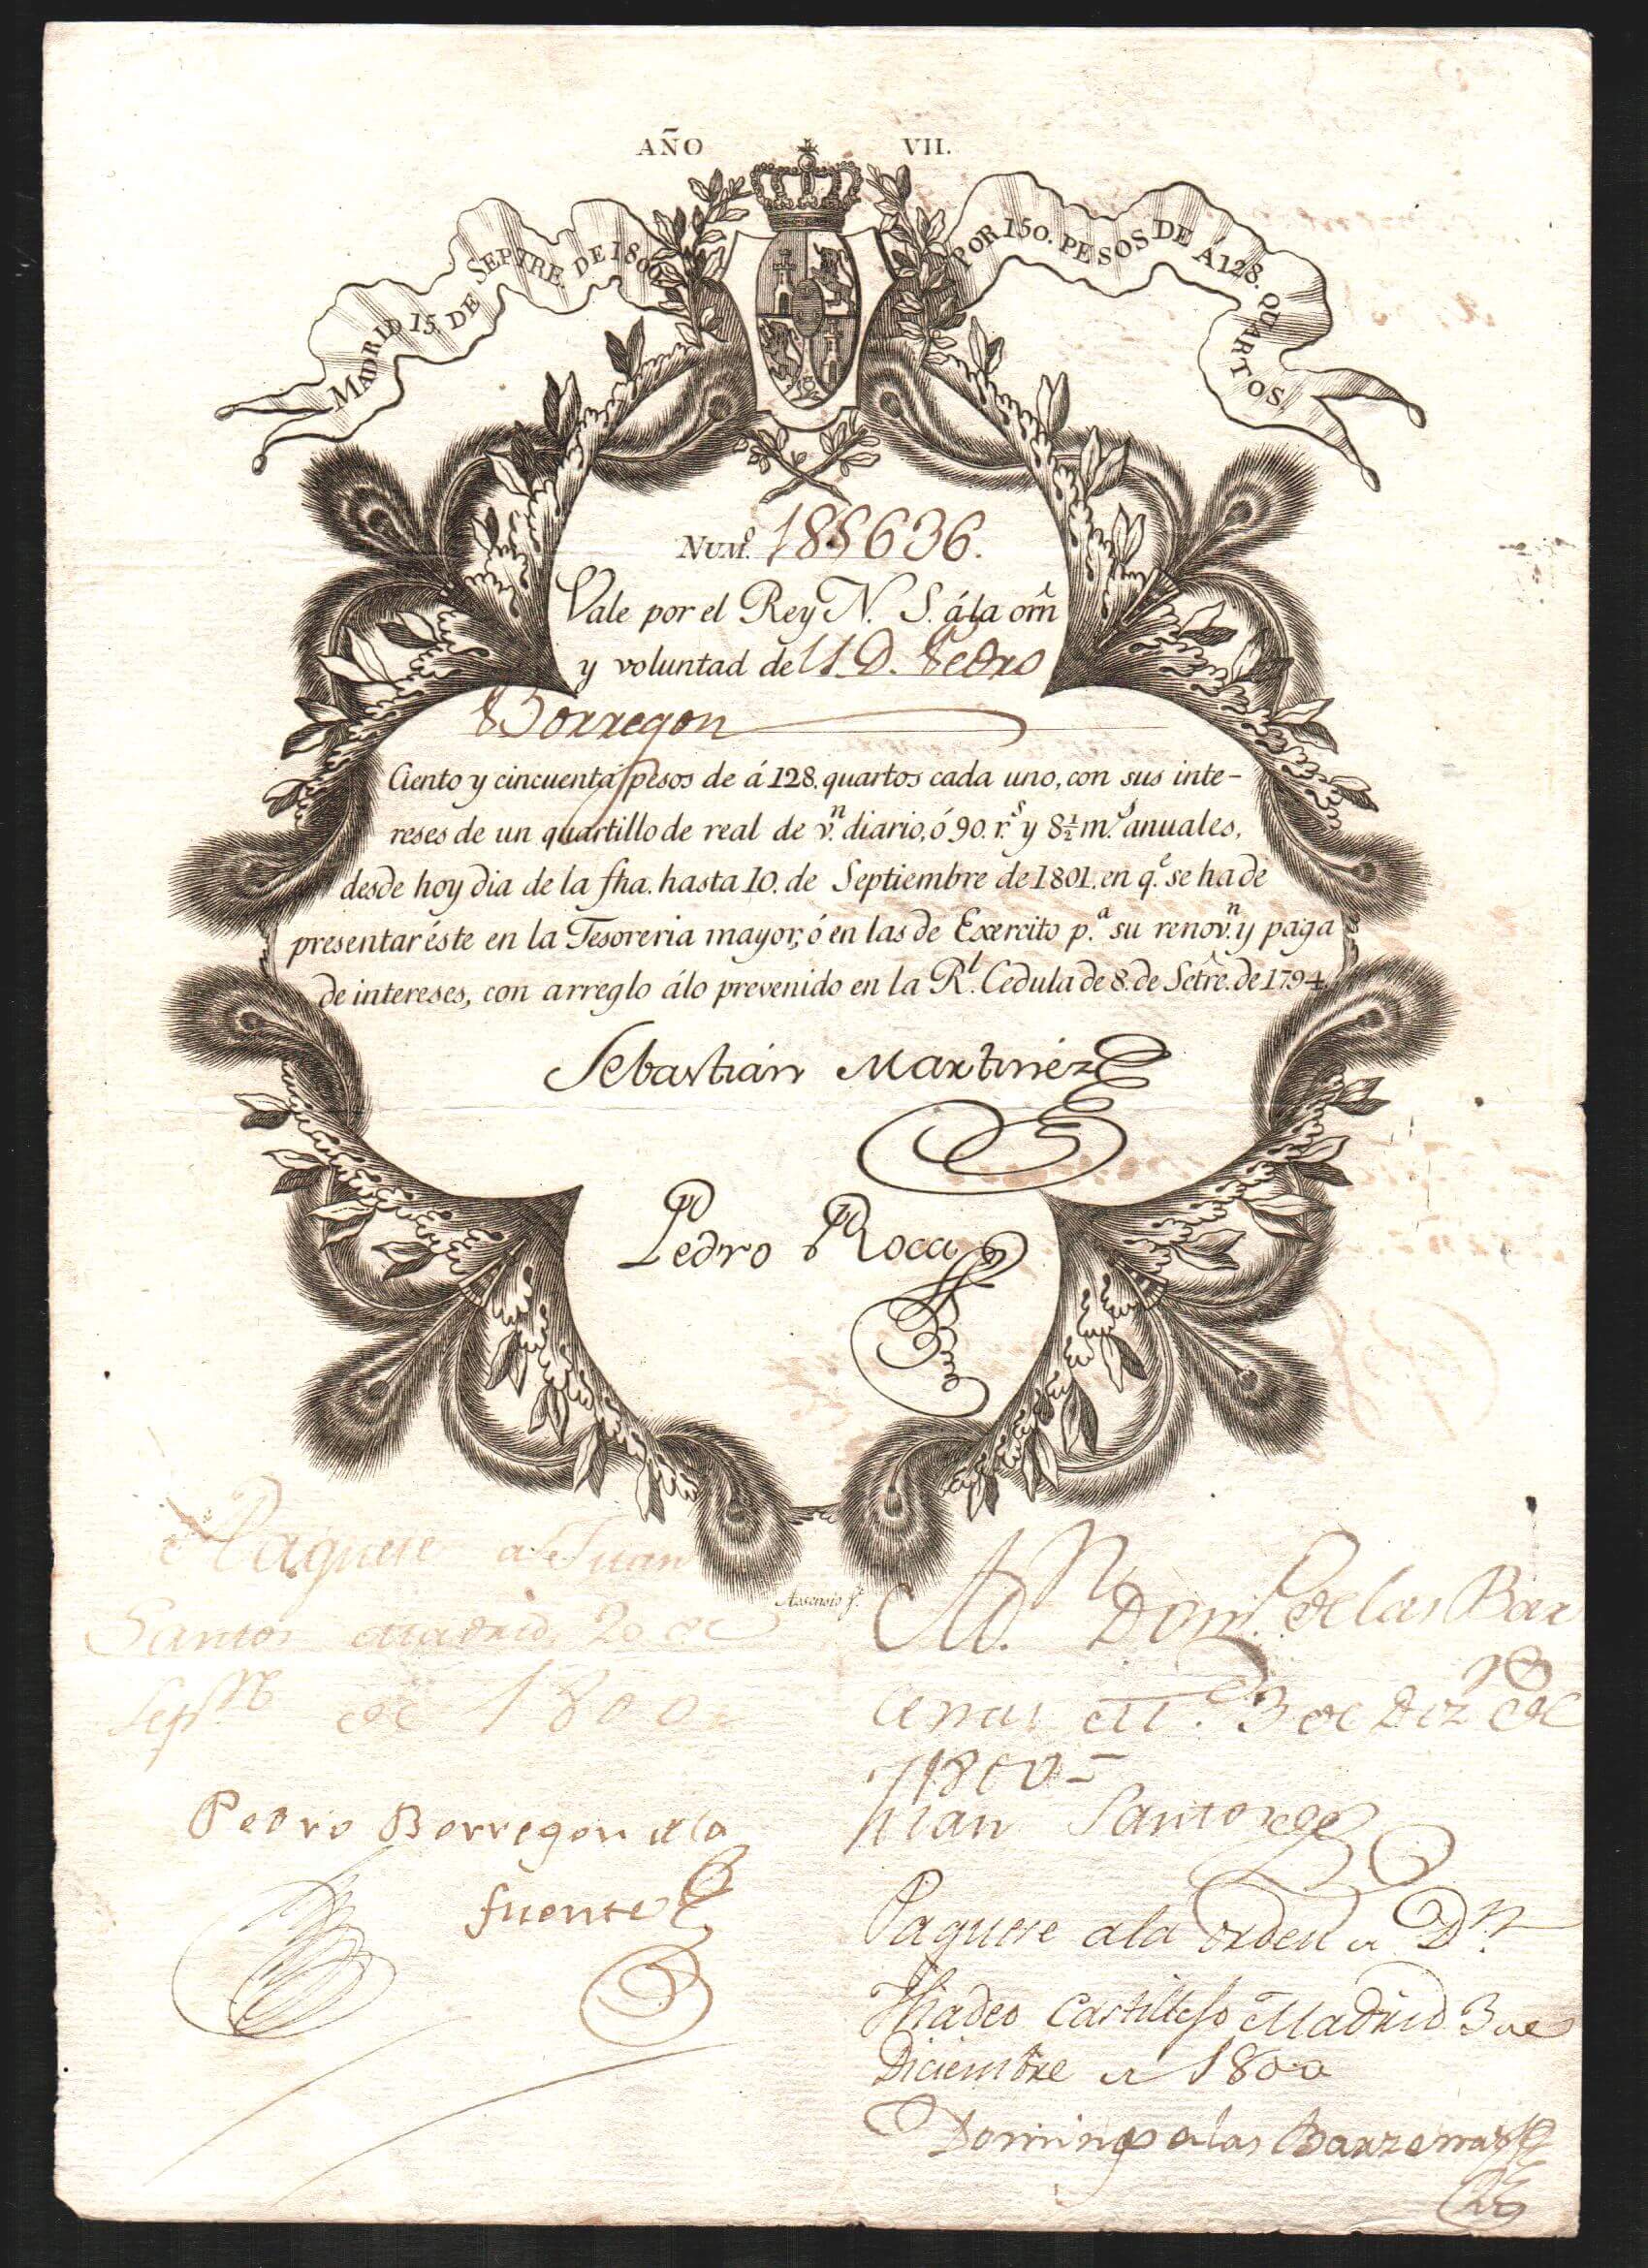 AÑO VII.
MADRID 15 DE SEPTRE DE 1800
POR 150. PESOS DE Á 128. QUARTOS
NUMº. 188636.
Vale por el Rey N. S. á la orñ
y voluntad de D. Pedro
Borregon
Ciento y cincuenta pesos de á 128. quartos cada uno, con sus inte-
reses de un quartillo de real de v.n diario, ó 90. r.s y 8½ m.s anuales,
desde hoy dia de la fha. hasta 10. de Septiembre de 1801. en q.e se ha de
presentar éste en la Tesoreria mayor, ó en las de Exercito p.a su renov.n y paga
de intereses, con arreglo á lo prevenido en la R.l Cedula de 8. de Setre. de 1794.
Sebastián Martinez
Pedro Roca
Assensio f.t
Paguese a Juan
Santos Madrid 20 de
de 1800
Pedro Borregon de la
fuente
Dom.º de las Bar
cenas 3 de Diz.re de
1800
Juan Santos
Paguese a la orden de D.n
Thadeo Castillejo Madrid 3 de
Diciembre de 1800
Domingo de las Barzenas